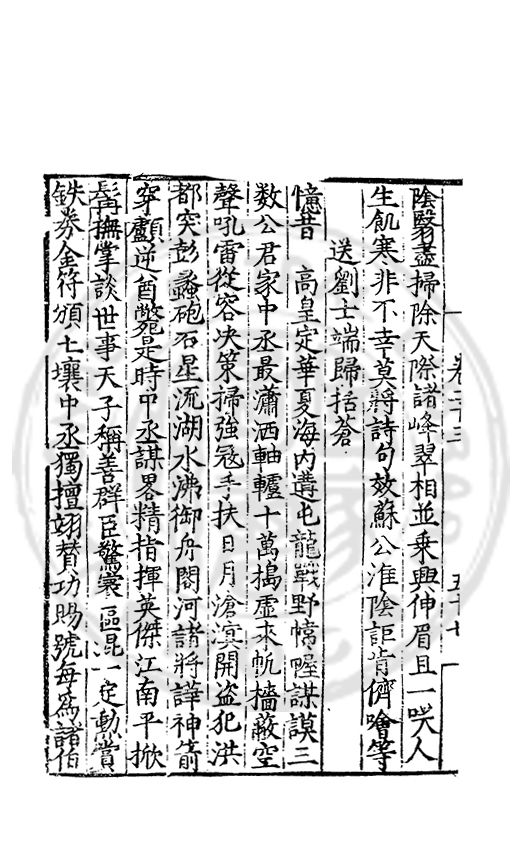 卷二十三
五十七
陰翳盡掃除天際諸峰翠相並乗興伸眉且一咲人
生飢寒非不幸莫將詩句效蘇公淮陰詎肯儕噲等
送劉士端歸括蒼
憶昔 高皇定華夏海内遘屯龍戰野幃幄謀謨三
数公君家中丞最瀟洒軸轤十萬搗虛來帆檣蔽空
聲吼雷從容决策掃強冦手扶日月滄溟開盗犯洪
都突彭蠡砲石星流湖水沸御舟閣河諸將譁神箭
穿顱逆酋斃是時中丞謀畧精指揮英傑江南平掀
髯撫掌談世事天子稱善群臣驚寰區混一定勳賞
鉄券金符頒土壤中丞獨擅翊賛功賜號每爲諸伯